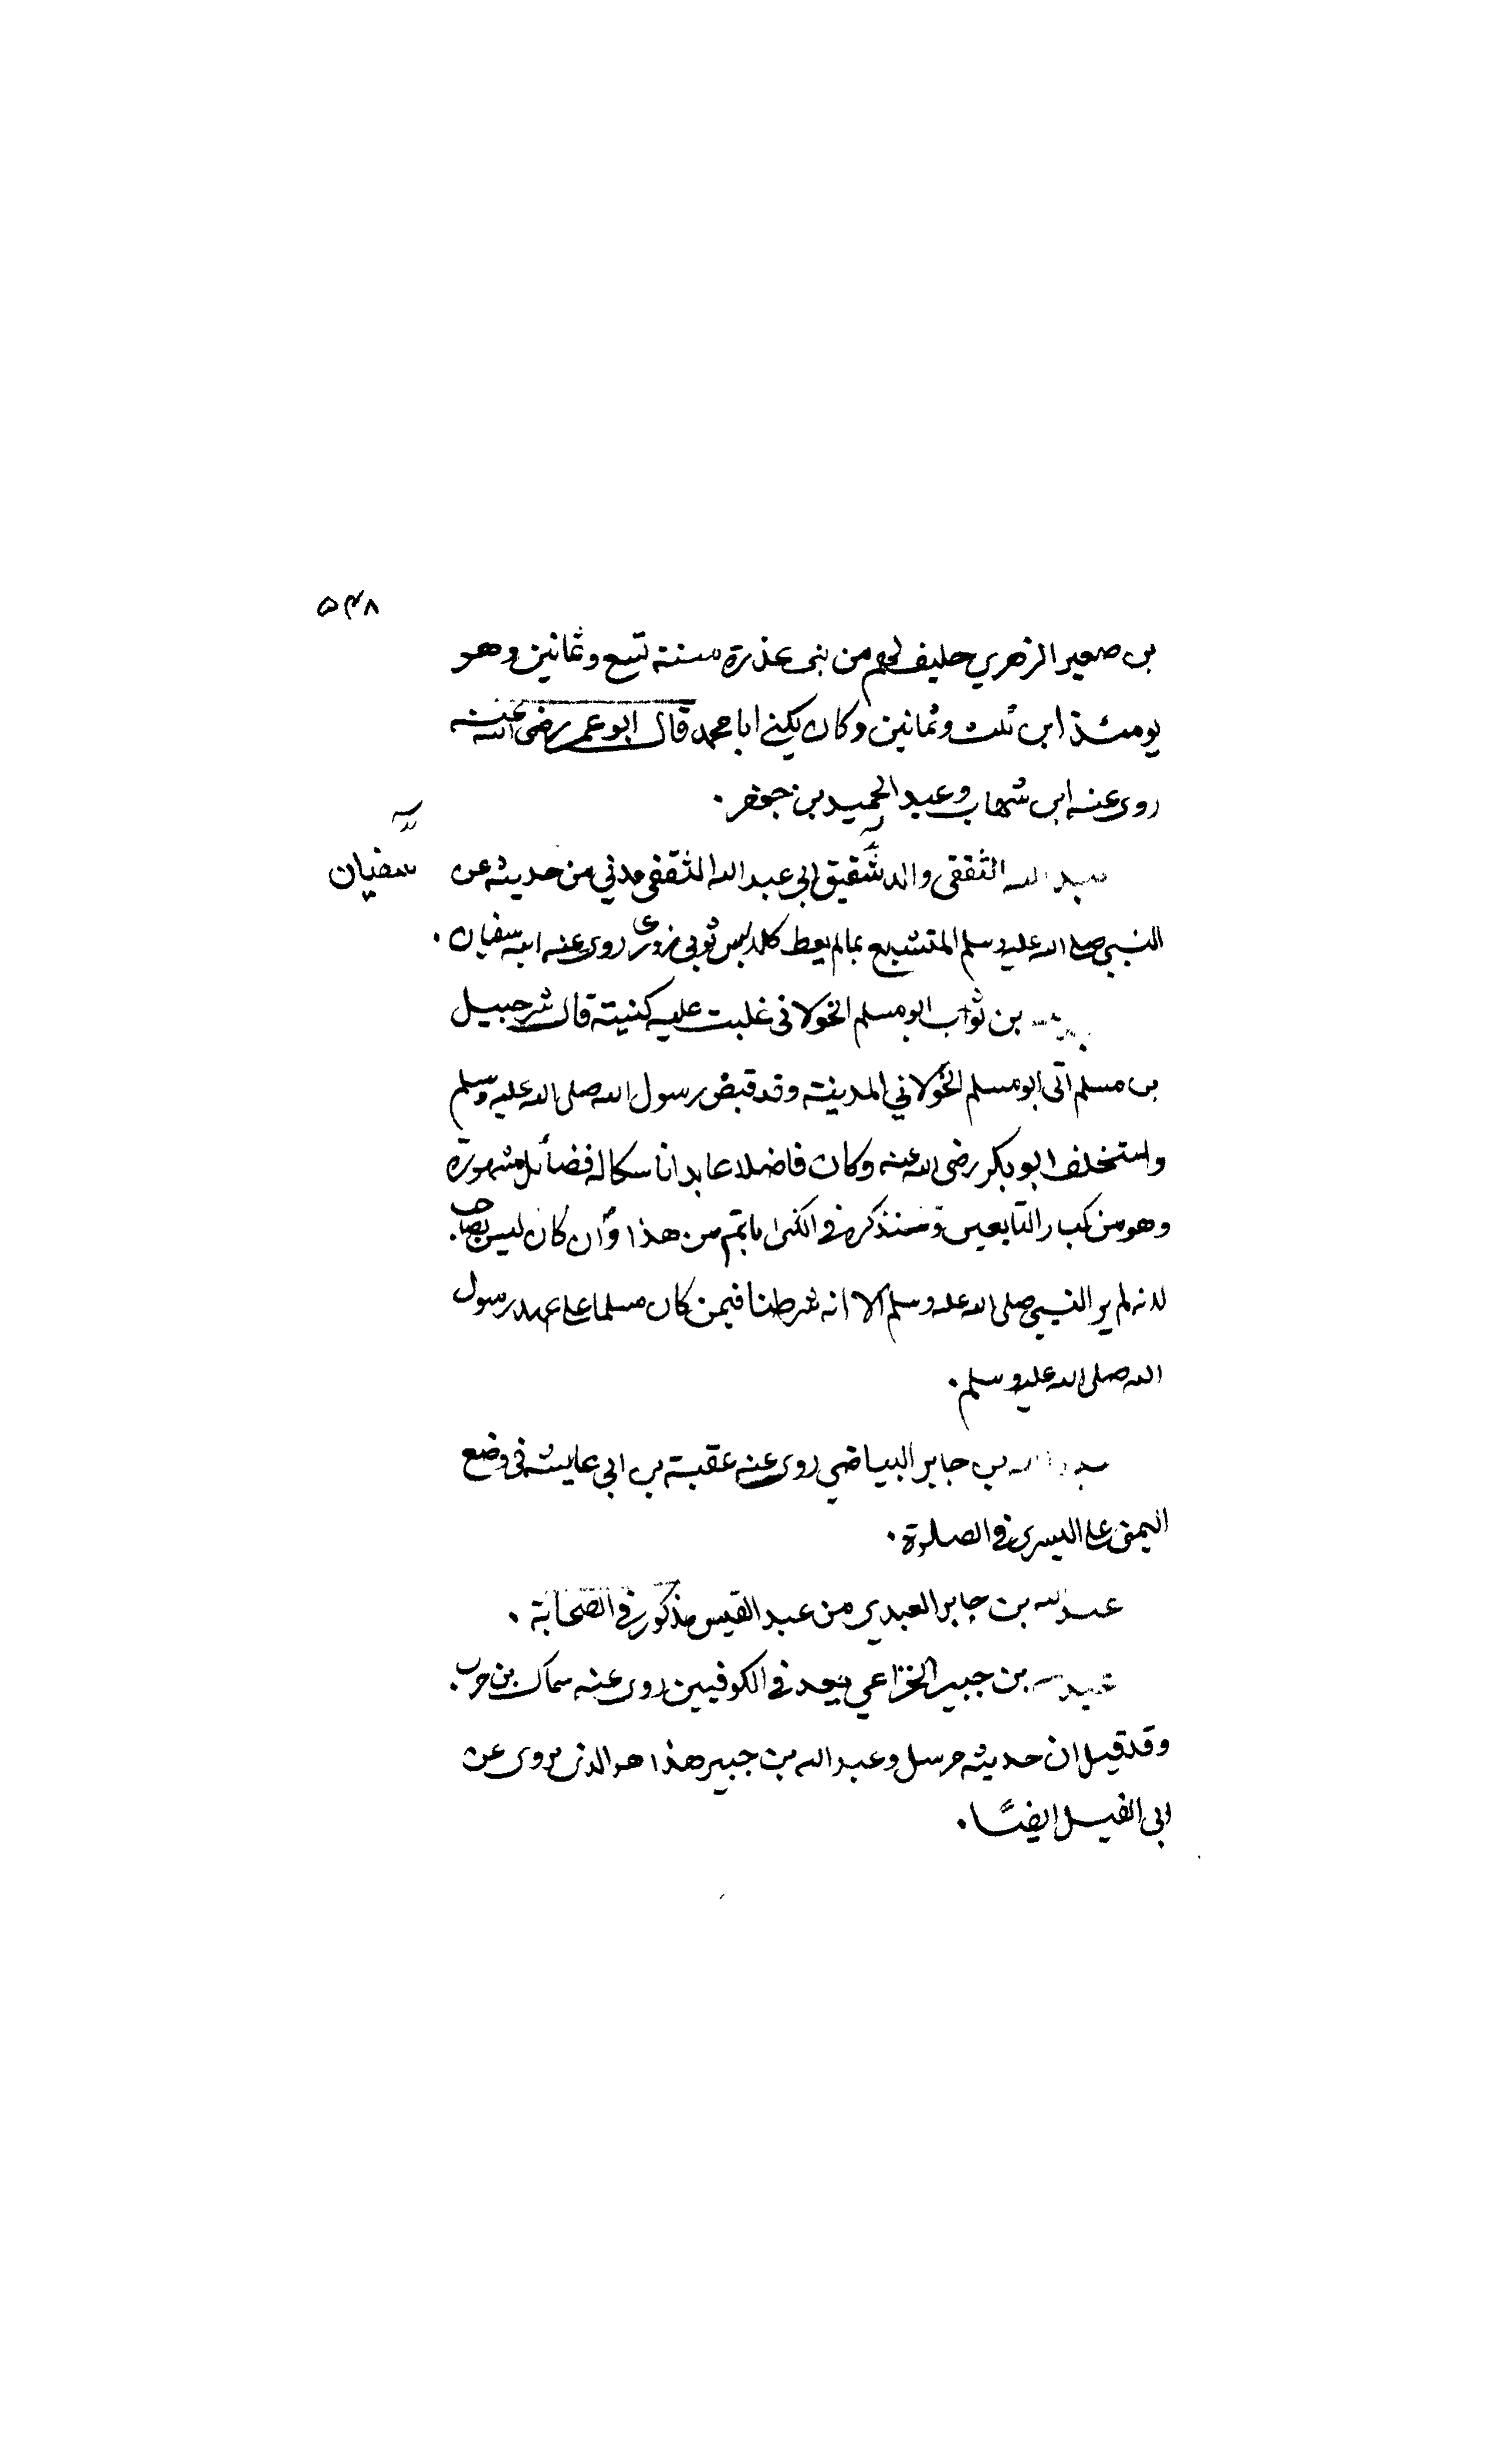 ٥٣٨
بن صعير الزهري حليف لهم من بنى عذرة سنة تسع وثمانين وهو
يومئذ ابن ثلث وثمانين وكان يكنى ابا محمد قال ابو عمر رضى الله عنه
روى عنه ابن شهاب وعبد الحميد بن جعفر .
عبد الله الثقفى والد شقيق ابى عبد الله الثقفى مدني من حديثه عن
سفيان
النبي صلى الله عليه وسلم المتشبع بما لم يعط كلابس ثوبى زور روى عنه ابنه سفيان .
بن ثوب ابو مسلم الخولانى غلبت عليه كنيته قال شرحبيل
بن مسلم اتى ابو مسلم الخولاني المدينة وقد قبض رسول الله صلى الله عليه وسلم
واستخلف ابو بكر رضى الله عنه وكان فاضلا عابدا ناسكا له فضائل مشهورة
وهو من كبار التابعين وسنذكره فى الكنى باتم من هذا وان كان ليس بصاحب
لانه لم ير النبي صلى الله عليه وسلم الا انه شرطنا فيمن كان مسلما على عهد رسول
الله صلى الله عليه وسلم .
عبد الله بن جابر البياضي روى عنه عقبة بن ابى عايشة فى وضع
اليمنى على اليسرى فى الصلوة .
عبد الله بن جابر العبدي من عبد القيس مذكور فى الصحابة .
عبد الله بن جبير الخزاعي يعد فى الكوفيين روى عنه سماك بن حرب .
وقد قيل ان حديثه مرسل وعبد الله بن جبير هذا هو الذى يروى عن
ابى الفيل ايضًا .